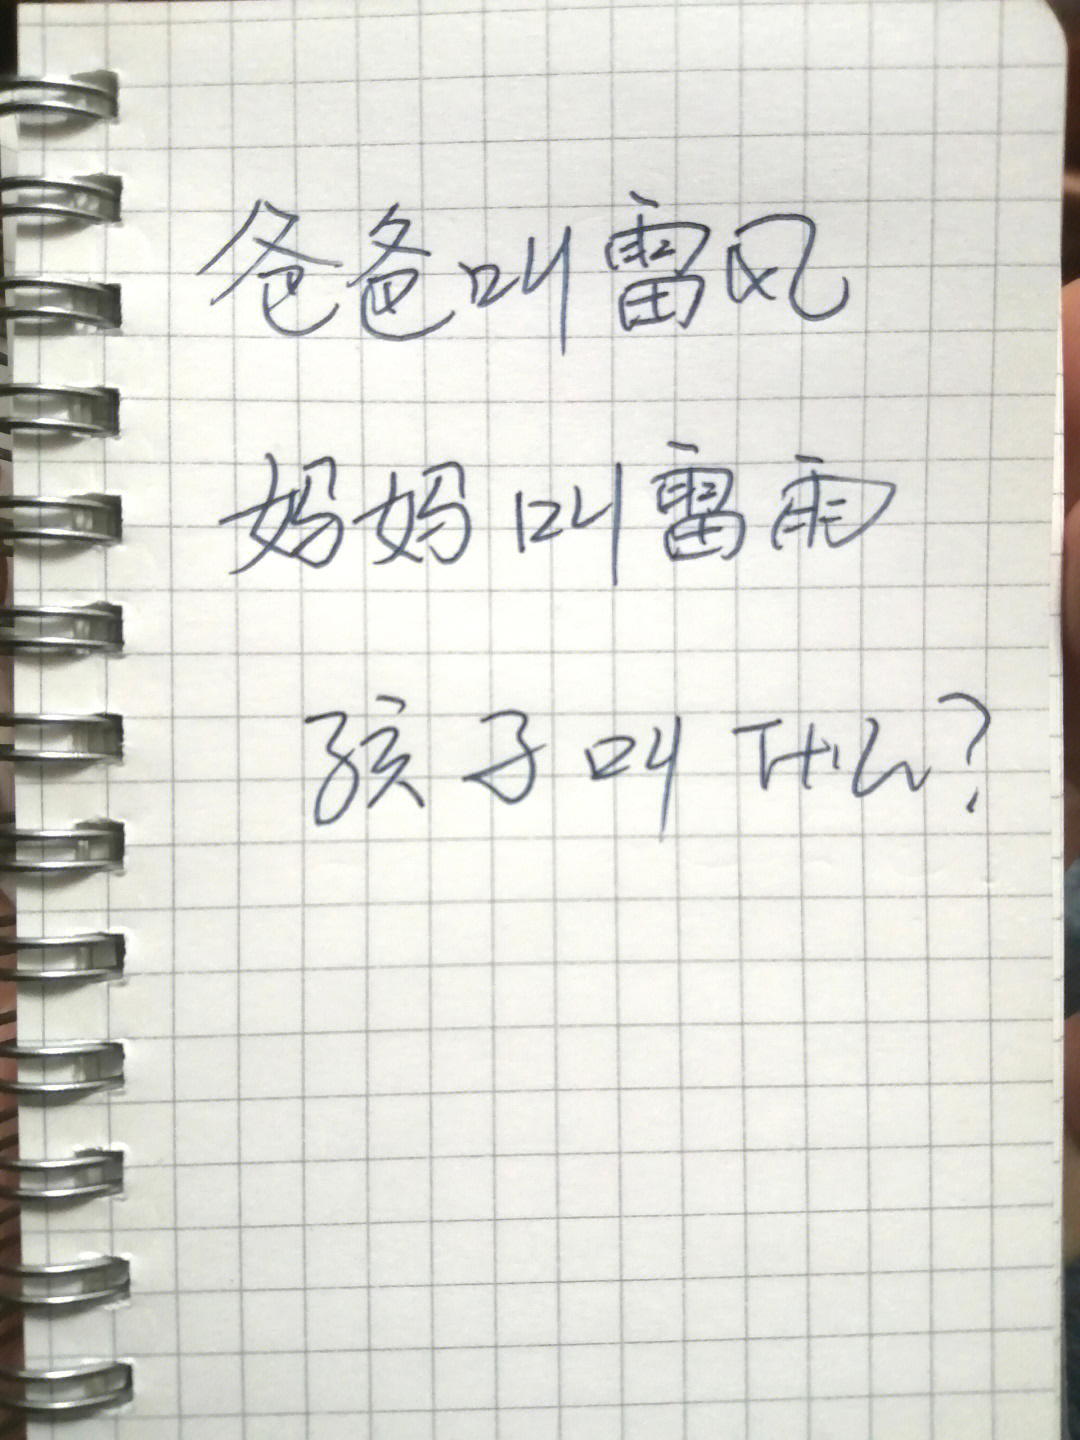 爸爸叫雷风
妈妈叫雷雨
孩子叫什么?